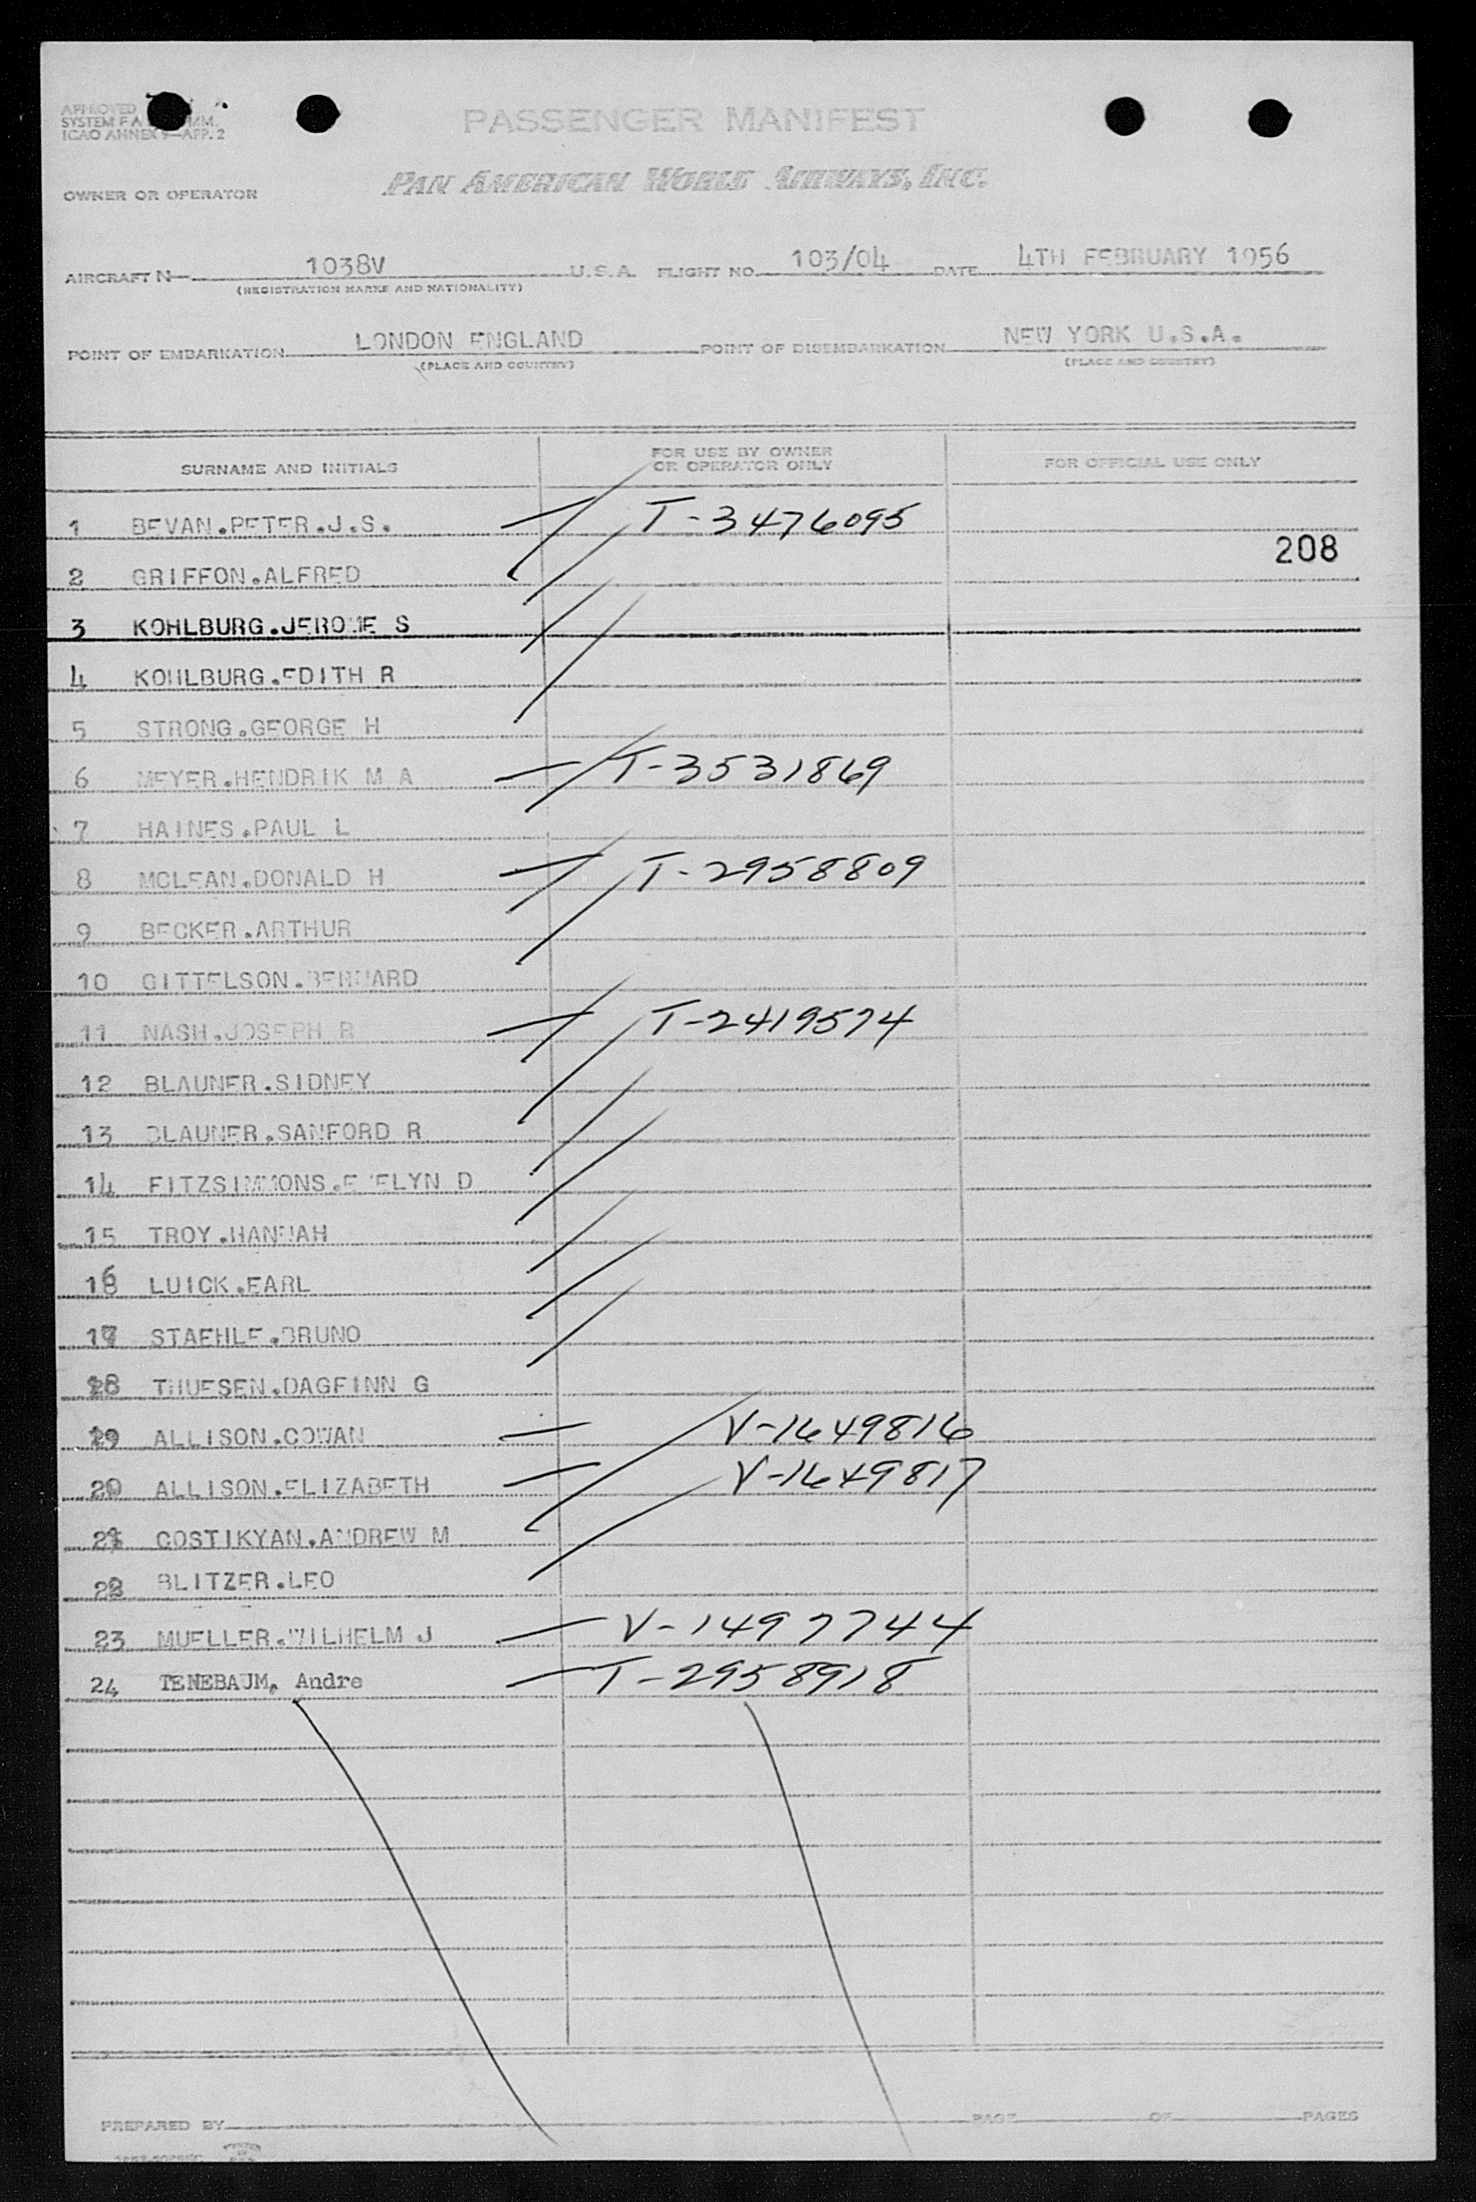 APPROVED
SYSTEM F A COMM.
ICAO ANNEX 9—APP. 2
PASSENGER MANIFEST
OWNER OR OPERATOR PAN AMERICAN WORLD AIRWAYS, INC.
AIRCRAFT N 1038V U.S.A. FLIGHT NO. 103/04 DATE 4TH FEBRUARY 1956
(REGISTRATION MARKS AND NATIONALITY)
POINT OF EMBARKATION LONDON ENGLAND POINT OF DISEMBARKATION NEW YORK U.S.A.
(PLACE AND COUNTRY) (PLACE AND COUNTRY)
SURNAME AND INITIALS FOR USE BY OWNER OR OPERATOR ONLY FOR OFFICIAL USE ONLY
1 BEVAN.PETER.J.S. T-3476095
208
2 GRIFFON.ALFRED
3 KOHLBURG.JEROME S
4 KOHLBURG.EDITH R
5 STRONG.GEORGE H
6 MEYER.HENDRIK M A T-3531869
7 HAINES.PAUL L
8 MCLEAN.DONALD H T-2958809
9 BECKER.ARTHUR
10 GITTELSON.BERNARD
11 NASH.JOSEPH R T-2419574
12 BLAUNER.SIDNEY
13 BLAUNER.SANFORD R
14 FITZSIMMONS.EVELYN D
15 TROY.HANNAH
16 LUICK.EARL
17 STAEHLE.BRUNO
18 THUESEN.DAGFINN G
19 ALLISON.COWAN V-1649816
20 ALLISON.ELIZABETH V-1649817
21 COSTIKYAN.ANDREW M
22 BLITZER.LEO
23 MUELLER.WILHELM J V-1497744
24 TENEBAUM, Andre T-2958918
PREPARED BY PAGE OF PAGES